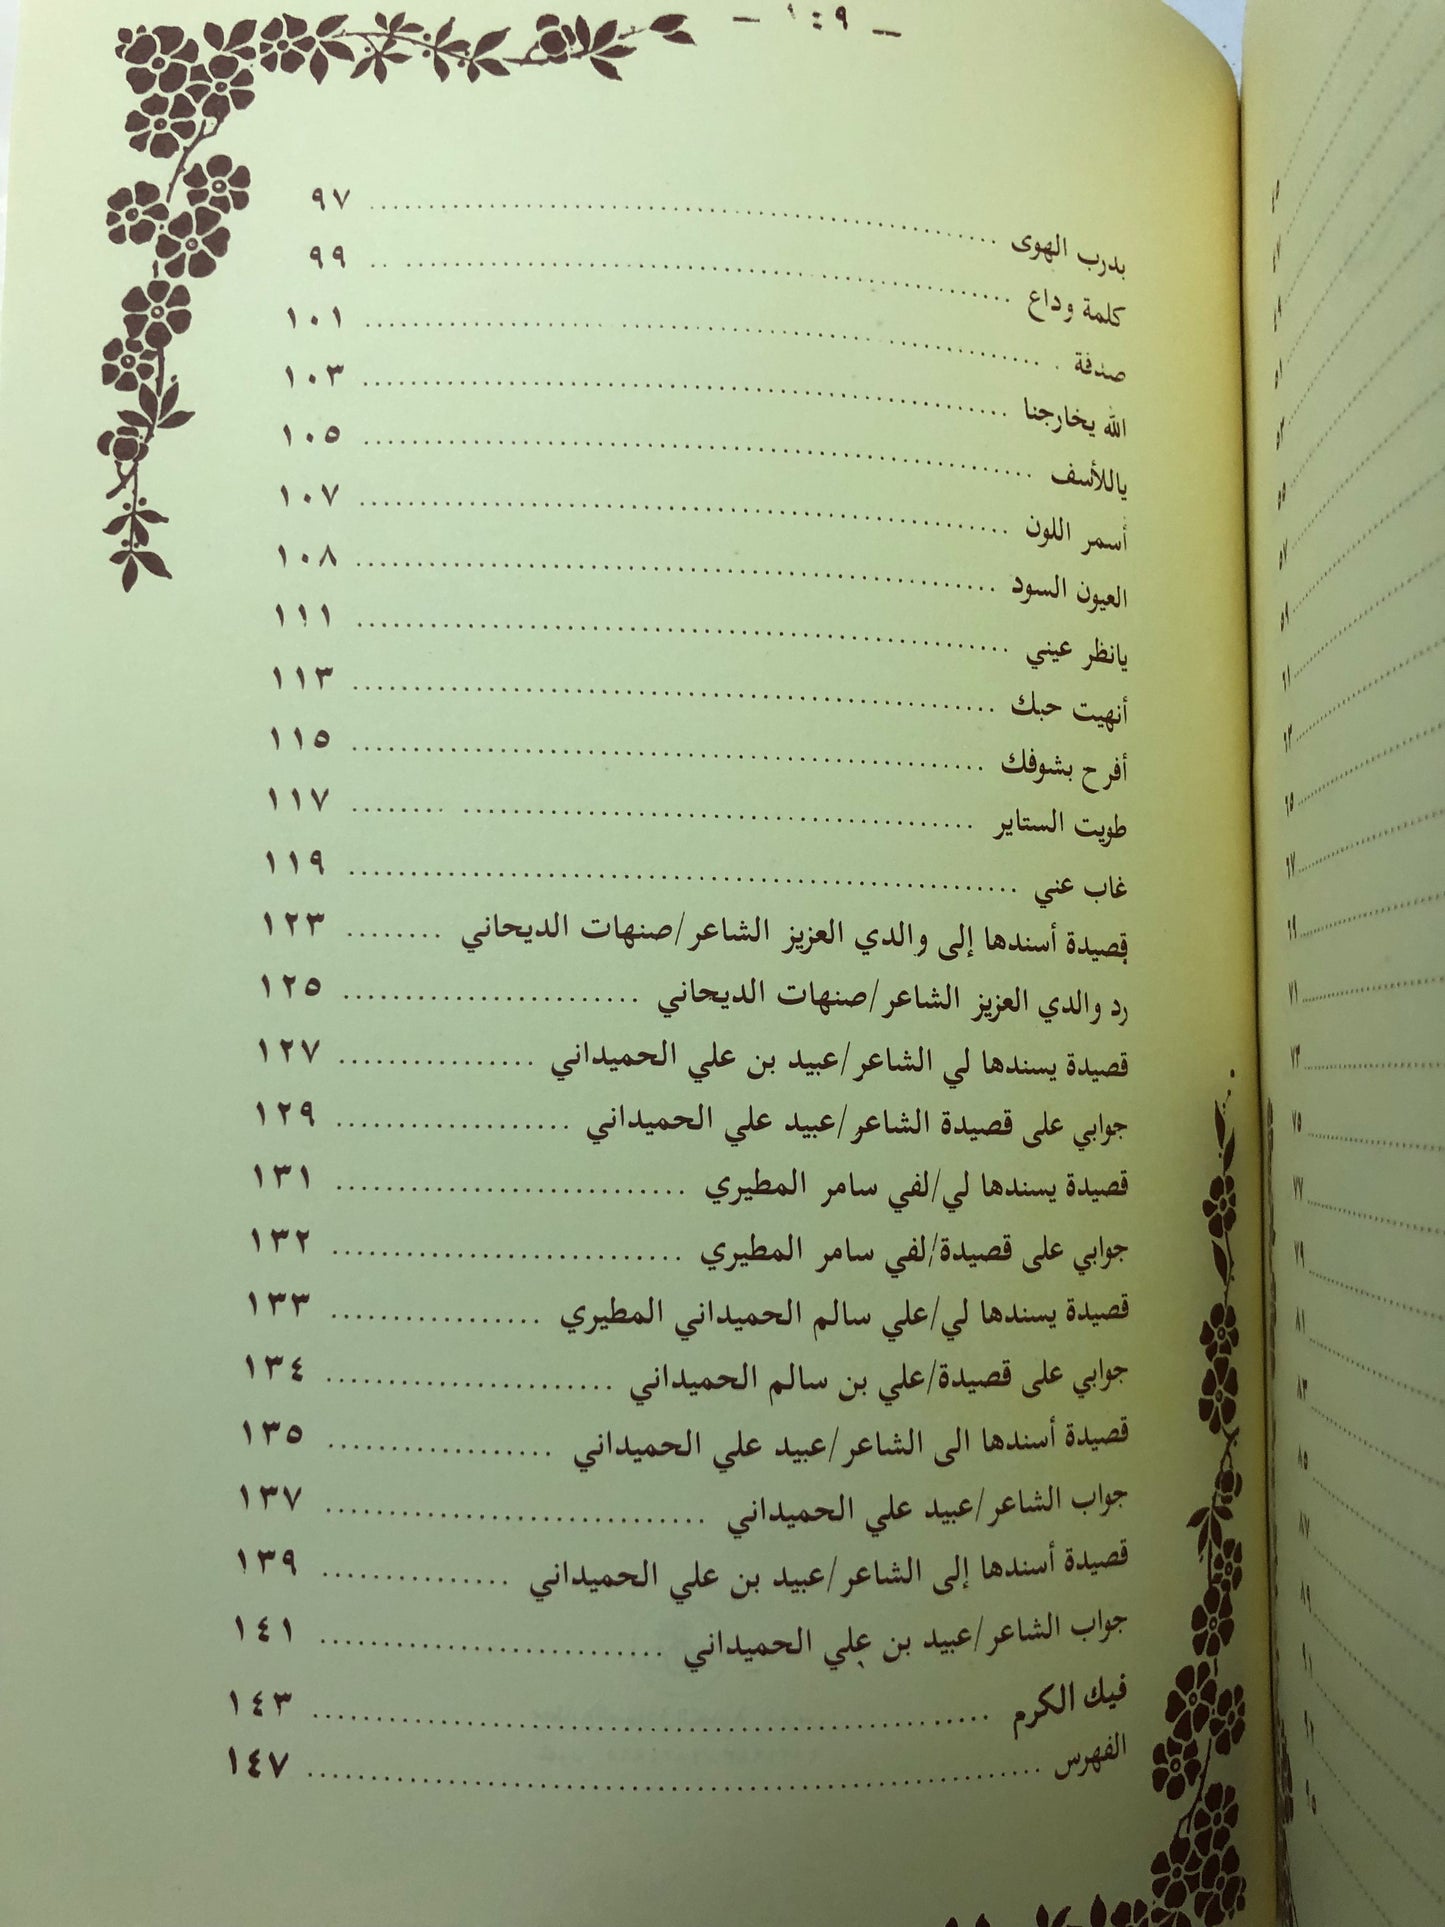 – ١٤٩ –
بدرب الهوى ........ ٩٧
كلمة وداع ........ ٩٩
صدفة ........ ١٠١
الله يخارجنا ........ ١٠٣
ياللأسف ........ ١٠٥
أسمر اللون ........ ١٠٧
العيون السود ........ ١٠٨
يانظر عيني ........ ١١١
أنهيت حبك ........ ١١٣
أفرح بشوفك ........ ١١٥
طويت الستاير ........ ١١٧
غاب عني ........ ١١٩
قصيدة أسندها إلى والدي العزيز الشاعر/صنهات الديحاني ........ ١٢٣
رد والدي العزيز الشاعر/صنهات الديحاني ........ ١٢٥
قصيدة يسندها لي الشاعر/عبيد بن علي الحميداني ........ ١٢٧
جوابي على قصيدة الشاعر/عبيد علي الحميداني ........ ١٢٩
قصيدة يسندها لي/لفي سامر المطيري ........ ١٣١
جوابي على قصيدة/لفي سامر المطيري ........ ١٣٢
قصيدة يسندها لي/علي سالم الحميداني المطيري ........ ١٣٣
جوابي على قصيدة/علي بن سالم الحميداني ........ ١٣٤
قصيدة أسندها الى الشاعر/عبيد علي الحميداني ........ ١٣٥
جواب الشاعر/عبيد علي الحميداني ........ ١٣٧
قصيدة أسندها إلى الشاعر/عبيد بن علي الحميداني ........ ١٣٩
جواب الشاعر/عبيد بن علي الحميداني ........ ١٤١
فيك الكرم ........ ١٤٣
الفهرس ........ ١٤٧
٤٥
٤٧
٤٩
٥١
٥٣
٥٥
٥٧
٥٩
٦١
٦٣
٦٥
٦٧
٦٩
٧١
٧٣
٧٥
٧٧
٧٩
٨١
٨٣
٨٥
٨٧
٨٩
٩١